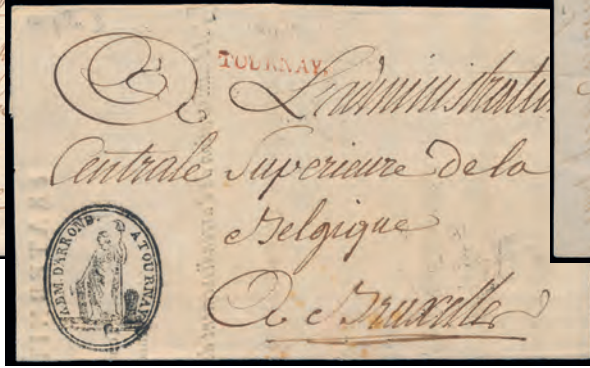 TOURNAY.
A L'administratio
Centrale Superieure De la
Belgique
A Bruxelles
ADM. D'ARROND. A TOURNAY